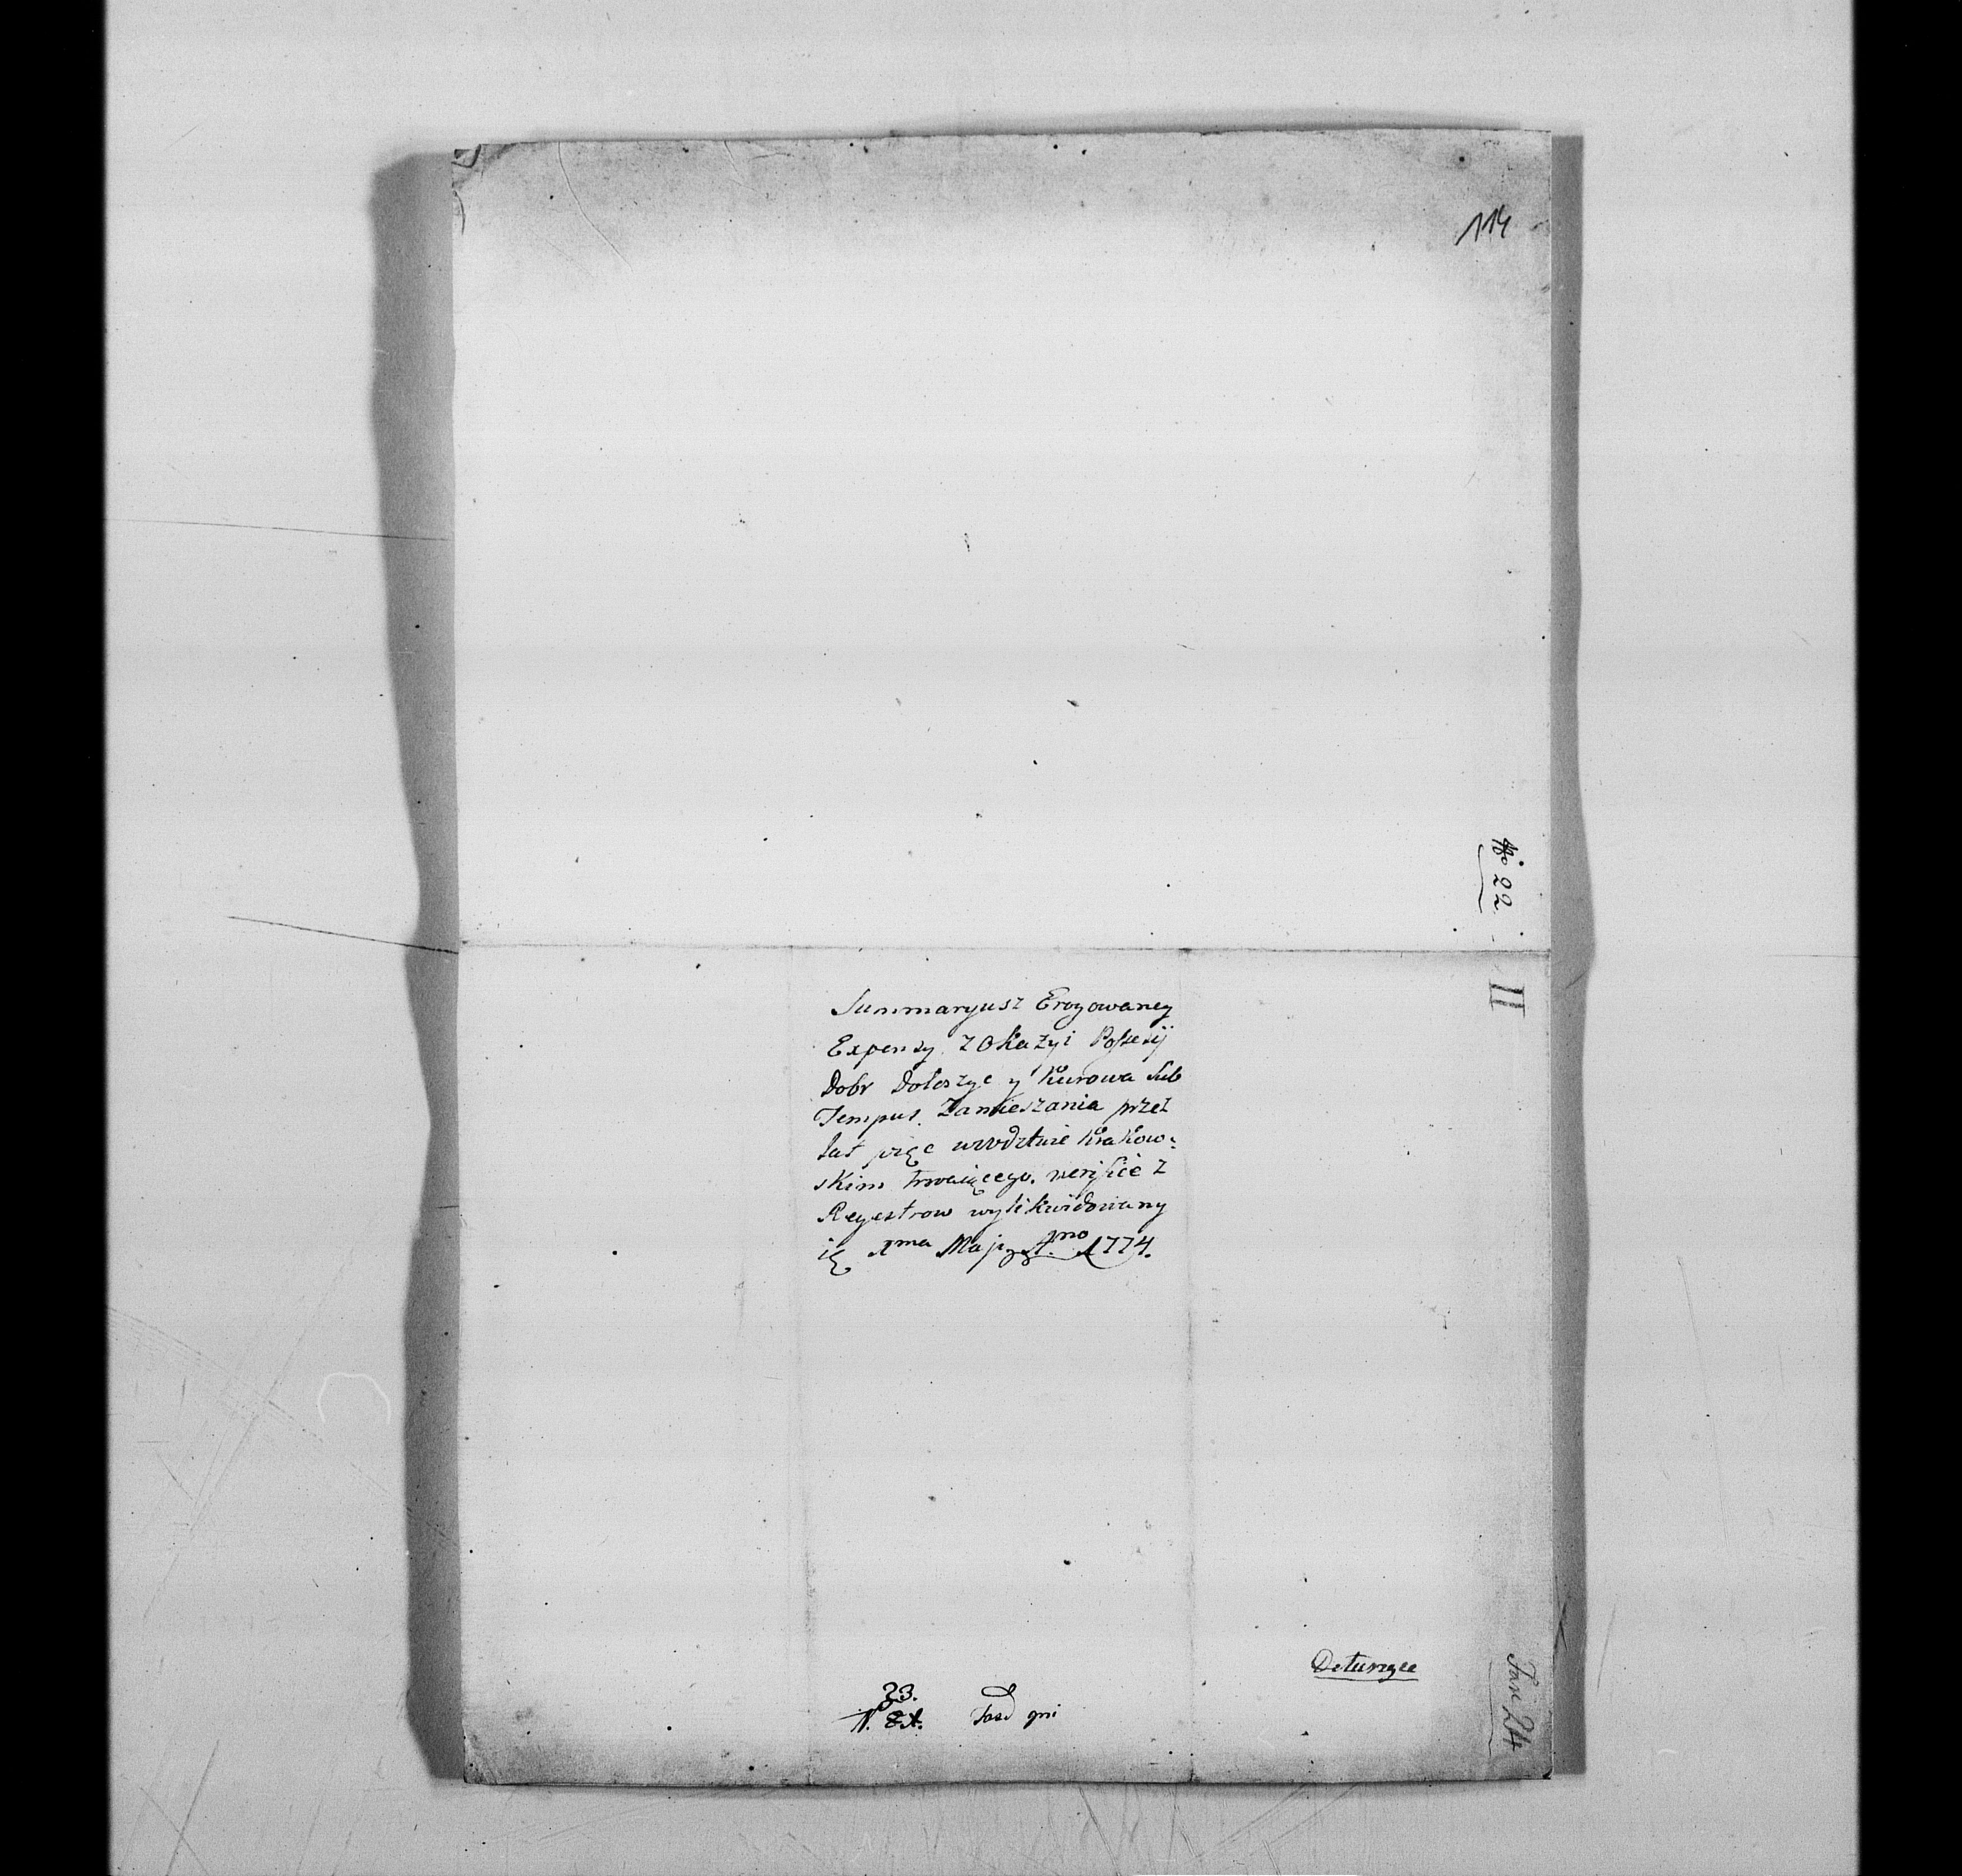 114
No 22
II
Summaryusz Erogowaney
Expensy z Okazyi Possesij
Dobr Doloszyc y Kurowa Sub
Tempus Zamieszania przez
lat pięc w wodztwie Krakow:
skim trwaiącego, verifice z
Regestrow wylikwidowany
1ma Maji Ao 1774.
Fasc 24
23.
N. 21.